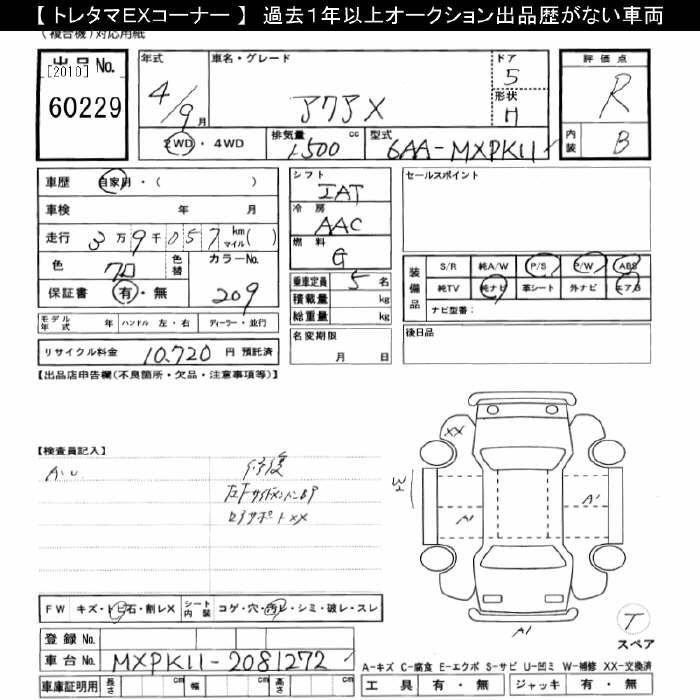 【 トレタマEXコーナー 】 過去1年以上オークション出品歴がない車両
(複合機)対応用紙
出品No.
[2010]
60229
年式 4/9月
車名・グレード アクアX
ドア 5
形状 H
2WD・4WD
排気量 1500 cc
型式 6AA-MXPK11
評価点 R
内装 B
車歴 自家用・( )
車検 年 月
走行 3万9千057 km マイル( )
色 クロ 色替 カラーNo. 209
保証書 有・無
モデル年式 年 ハンドル 左・右 ディーラー・並行
リサイクル料金 10,720 円 預託済
シフト IAT
冷房 AAC
燃料 G
乗車定員 5 名
積載量 kg
総重量 kg
名変期限 月 日
セールスポイント
装備品
S/R 純A/W P/S P/W ABS
純TV 純ナビ 革シート 外ナビ エアB
ナビ型番:
後日品
【出品店申告欄(不良箇所・欠品・注意事項等)】
【検査員記入】
A.U
修復
XX
A1
A1
A1
FW キズ・トビ石・割レX シート内装 コゲ・穴・汚レ・シミ・破レ・スレ
登録 No.
車台 No. MXPK11-2081272
車庫証明用 長さ cm 幅 cm 高さ cm
T
スペア
A-キズ C-腐食 E-エクボ S-サビ U-凹ミ W-補修 XX-交換済
工具 有・無 ジャッキ 有・無